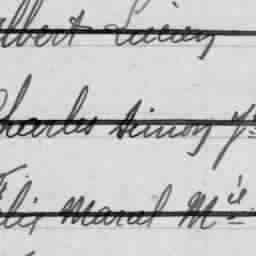 Albert Lucien
Charles Simon J
Félix Marcel Mie